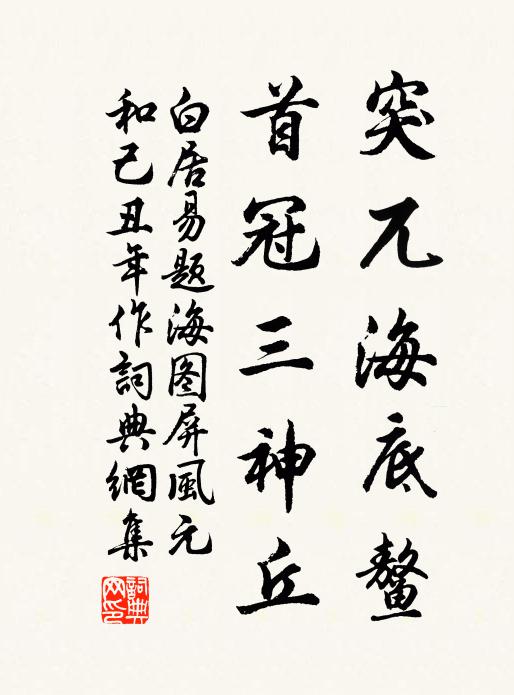 突兀海底鳌
首冠三神丘
白居易题海图屏風元
和己丑年作詞典網集
詞典
网印